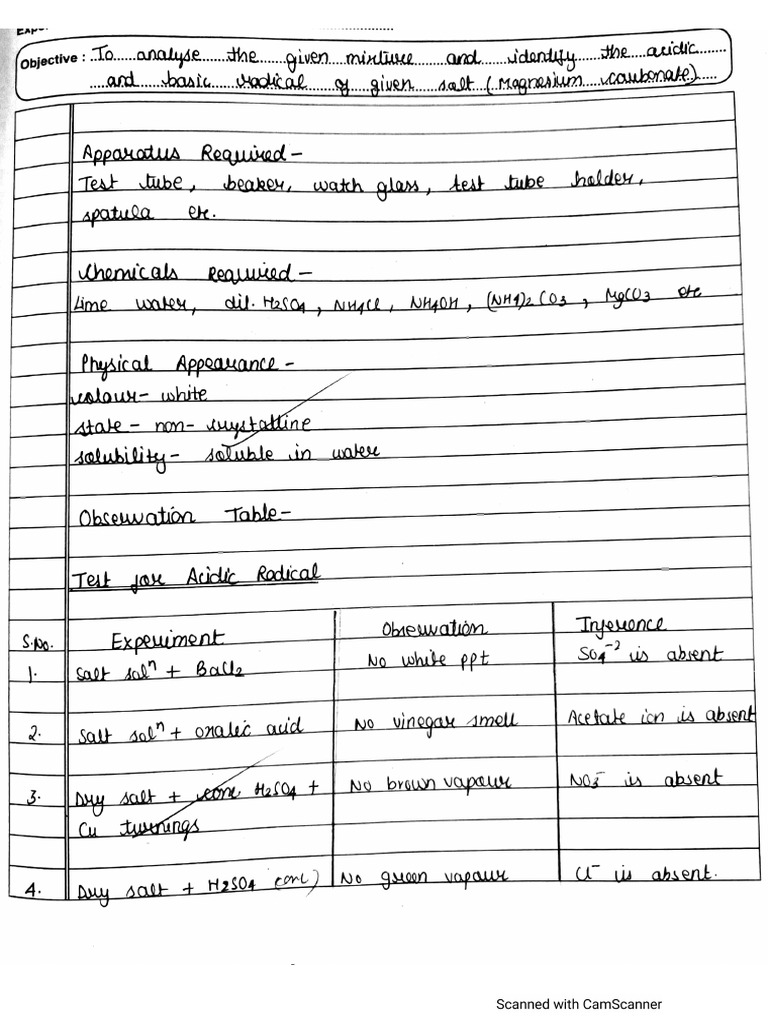 Objective : To analyse the given mixture and identify the acidic
and basic radical of given salt (Magnesium carbonate)
Apparatus Required -
Test tube, beaker, watch glass, test tube holder,
spatula etc.
Chemicals Required -
Lime water, dil. H2SO4, NH4Cl, NH4OH, (NH4)2 CO3, MgCO3 etc
Physical Appearance -
colour - white
state - non - crystalline
solubility - soluble in water
Observation Table -
Test for Acidic Radical
S.No. Experiment Observation Inference
1. Salt solⁿ + BaCl2 No white ppt SO4⁻² is absent
2. Salt solⁿ + oxalic acid No vinegar smell Acetate ion is absent
3. Dry salt + conc H2SO4 + No brown vapour NO3⁻ is absent
Cu turnings
4. Dry salt + H2SO4 conc) No green vapour Cl⁻ is absent.
Scanned with CamScanner